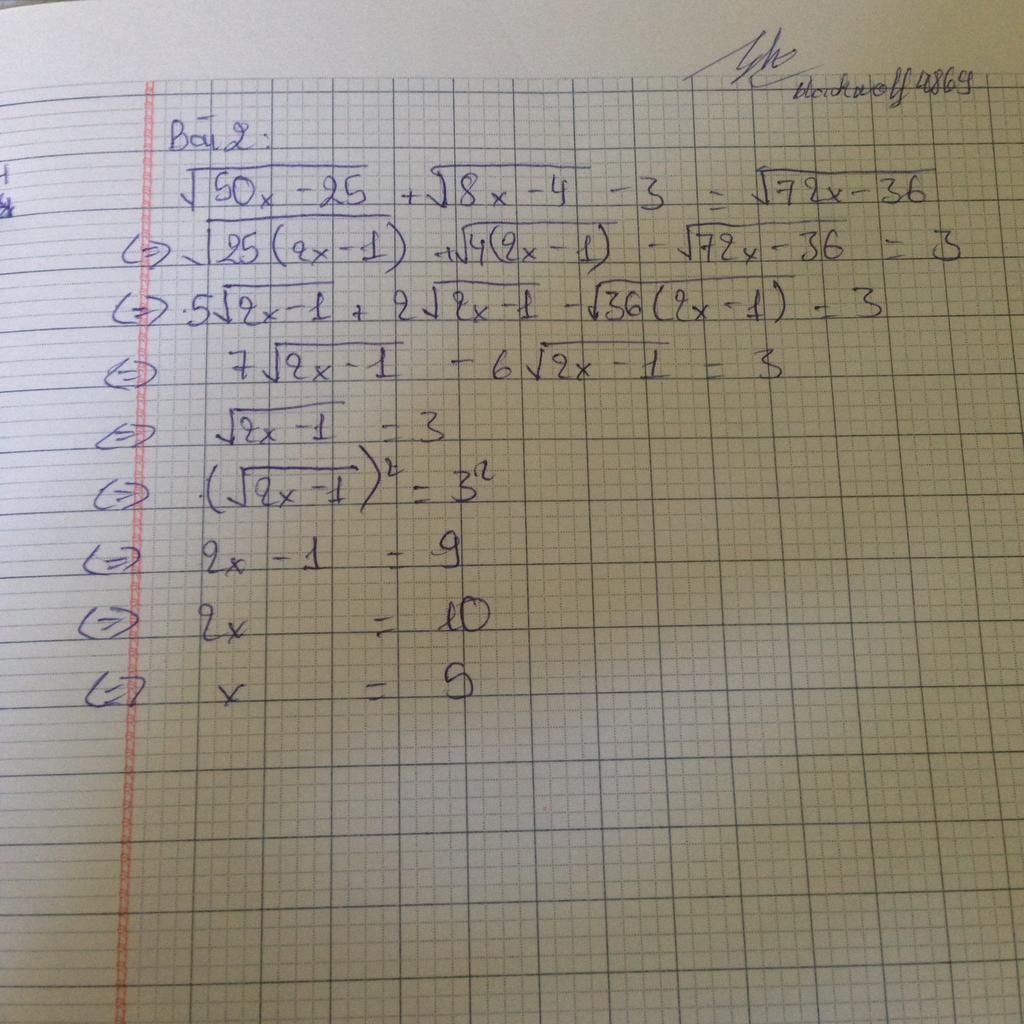 Bài 2:
√50x - 25 + √8x - 4 - 3 = √72x - 36
<=> √25(2x - 1) + √4(2x - 1) - √72x - 36 = 3
<=> 5√2x - 1 + 2√2x - 1 - √36(2x - 1) = 3
<=> 7√2x - 1 - 6√2x - 1 = 3
<=> √2x - 1 = 3
<=> (√2x - 1)² = 3²
<=> 2x - 1 = 9
<=> 2x = 10
<=> x = 5